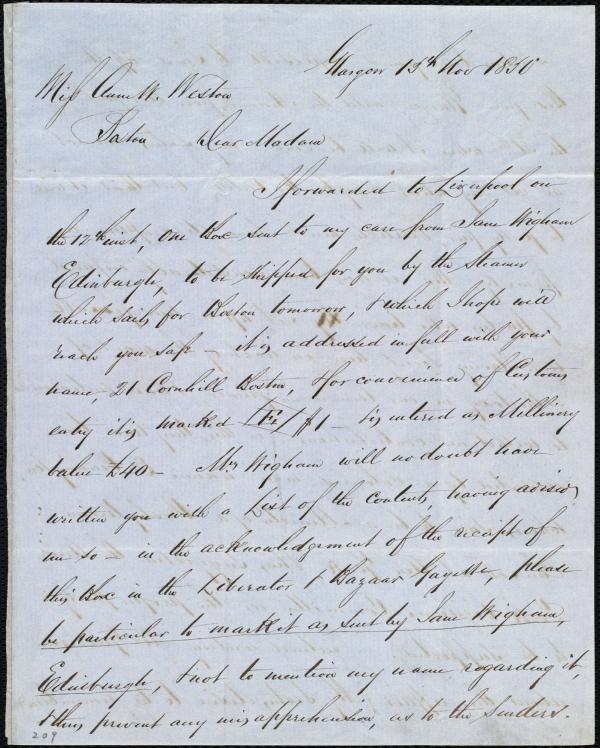 Glasgow 15th Nov 1850
Miss Anne W. Weston
Boston Dear Madam
I forwarded to Liverpool on
the 12th inst, one Box sent to my care from Jane Wigham
Edinburgh, to be shipped for you by the Steamer
which sails for Boston tomorrow, & which I hope will
reach you safe – it is addressed in full with your
name, 21 Cornhill Boston, & for convenience of Customs
entry it is marked /E/ #1 – & is entered as Millinery
value £40 – Mrs Wigham will no doubt have
written you with a List of the contents, having advised
me so – in the acknowledgement of the receipt of
this Box in the Liberator & Bazaar Gazette, please
be particular to mark it as sent by Jane Wigham,
Edinburgh, & not to mention my name regarding it,
& thus prevent any misapprehension, as to the Senders.
209